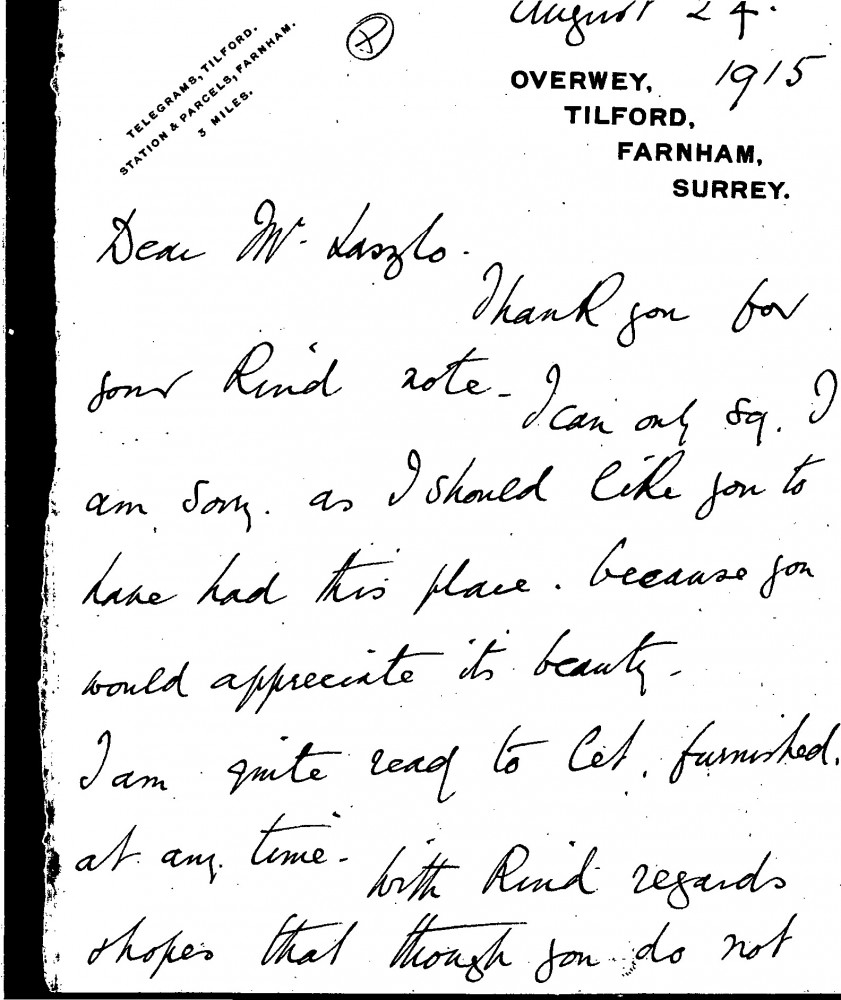 August 24.
1915
TELEGRAMS, TILFORD.
STATION & PARCELS, FARNHAM.
3 MILES.
X
OVERWEY,
TILFORD,
FARNHAM,
SURREY.
Dear Mr. Laszlo.
Thank you for
your kind note - I can only say. I
am sorry. as I should like you to
have had this place. because you
would appreciate its beauty -
I am quite ready to let, furnished.
at any time - With kind regards
& hopes that though you do not